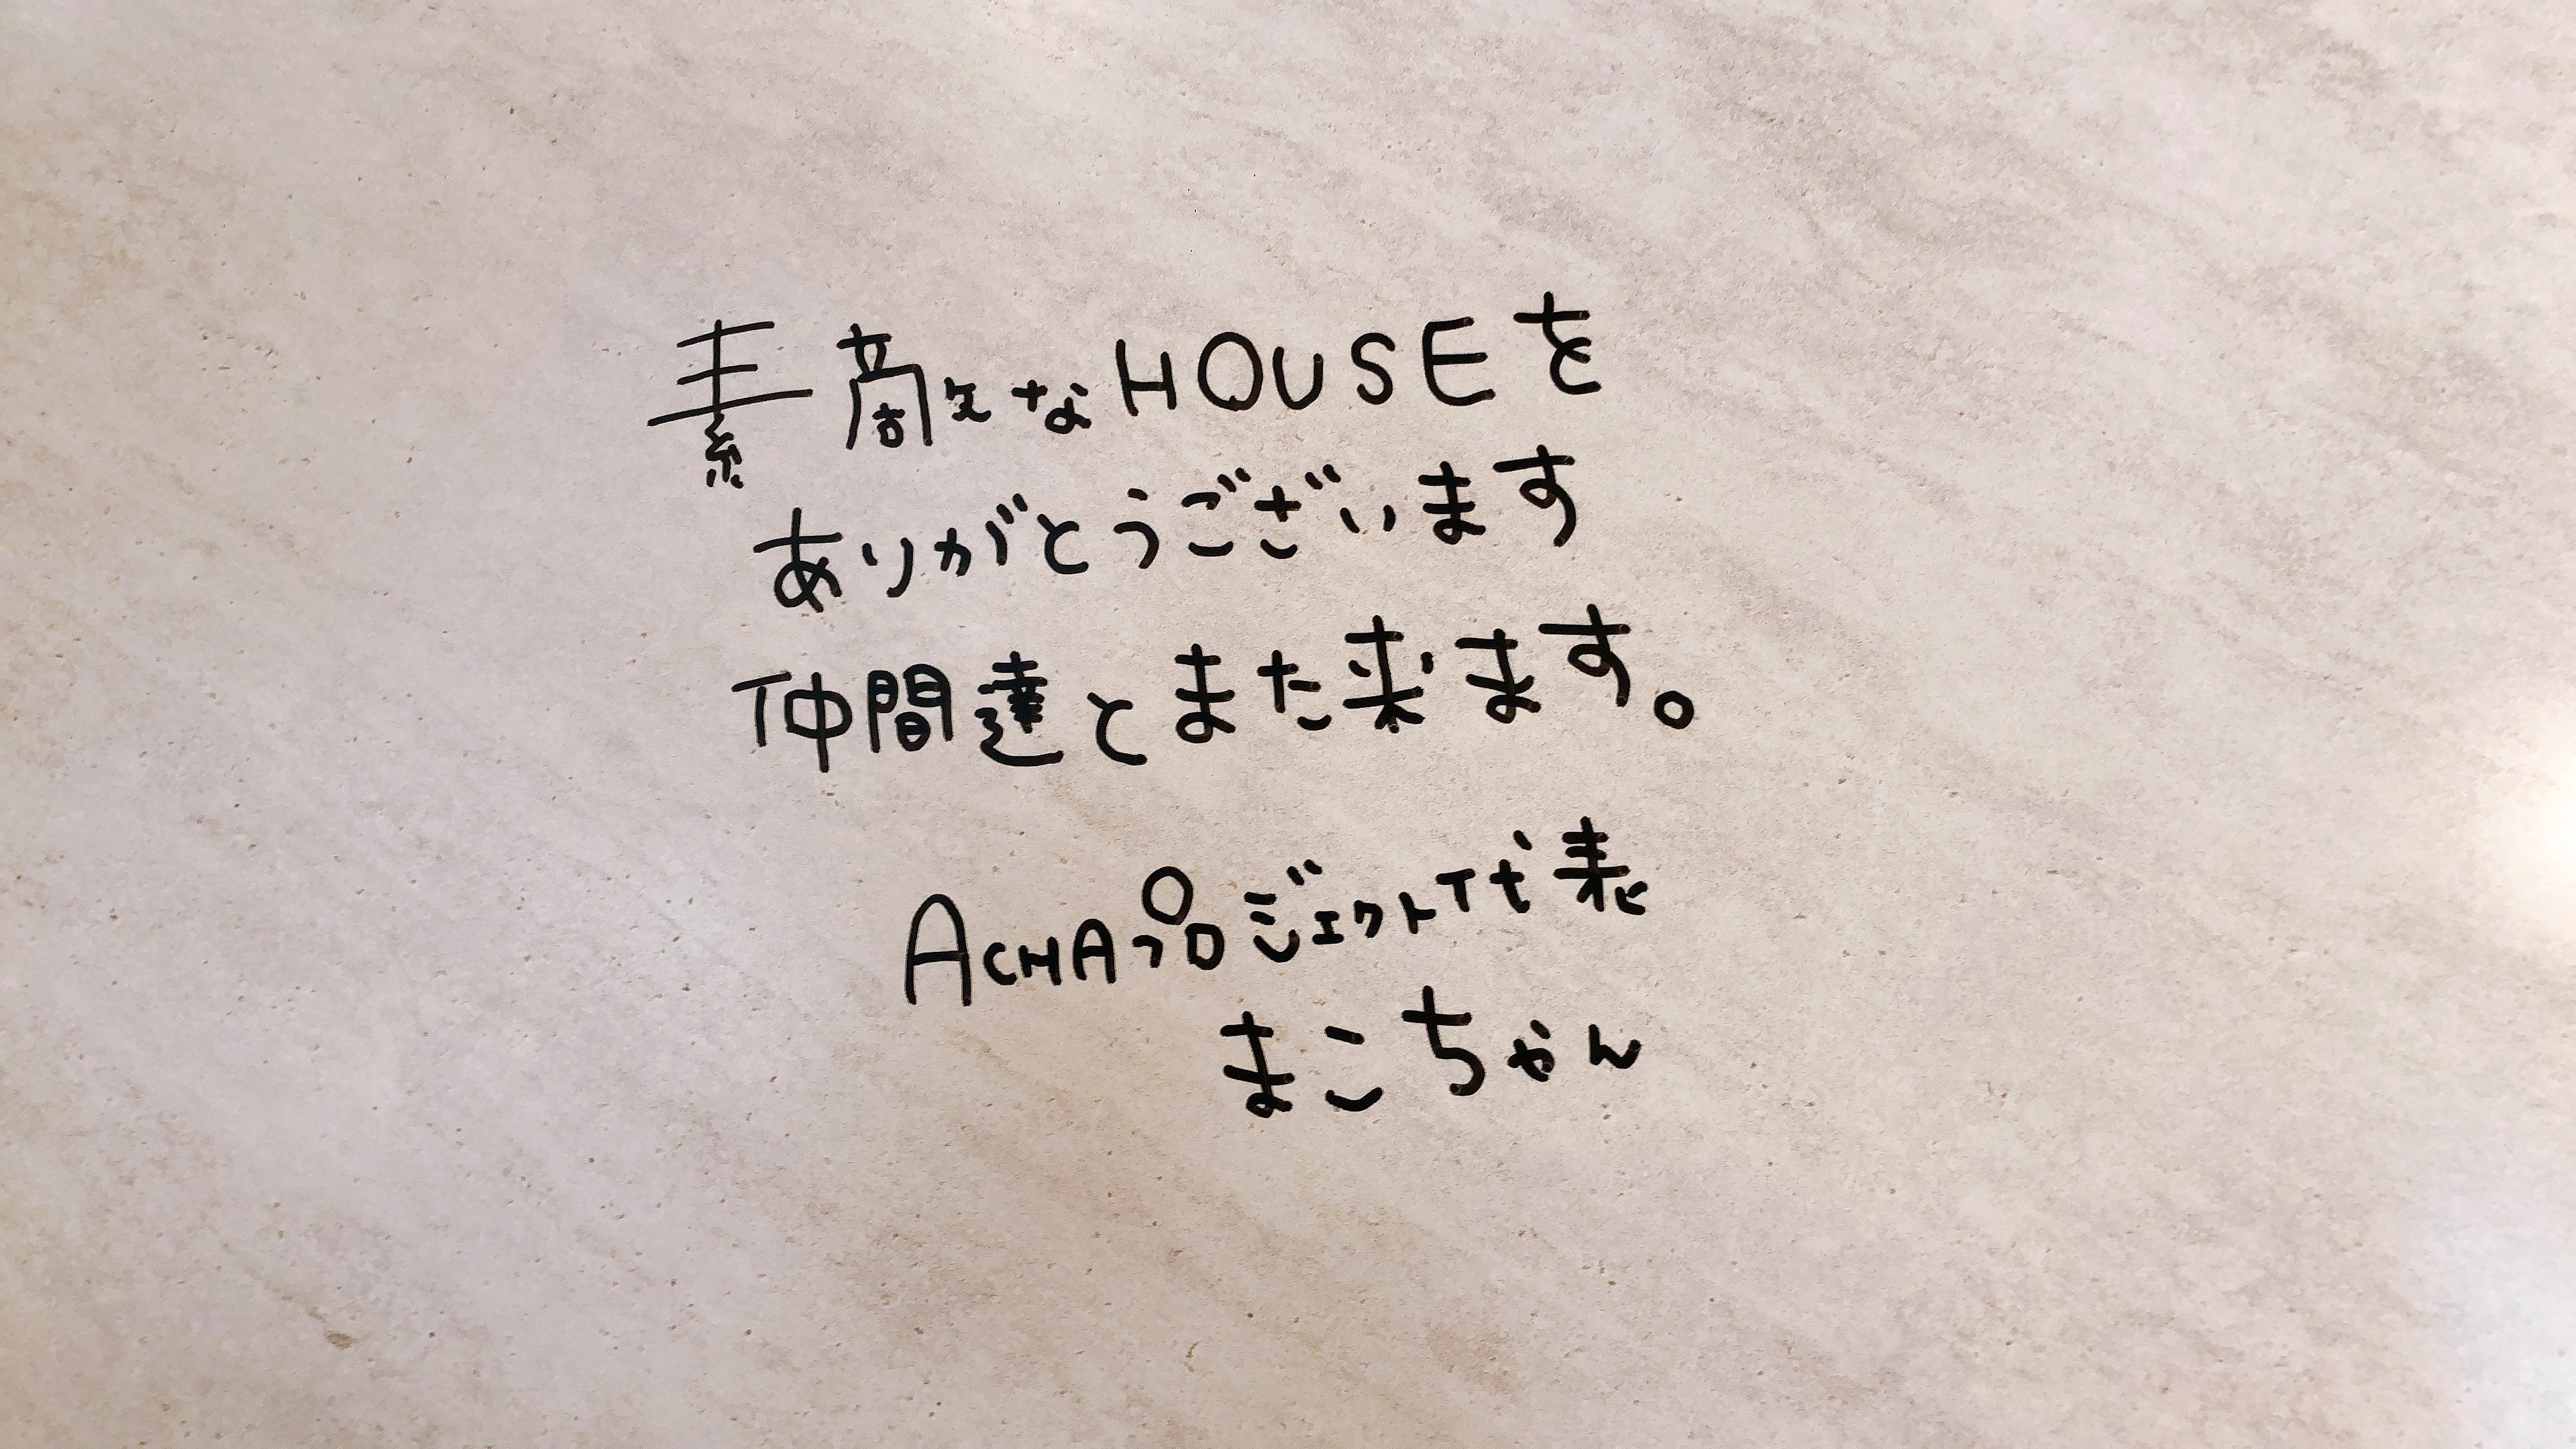 素敵なHOUSEを
ありがとうございます
仲間達とまた来ます。
ACHAプロジェクト代表
まこちゃん